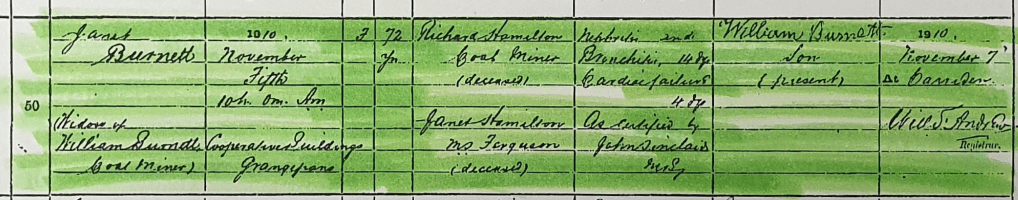 Janet
Burnett
Widow of
William Burnett
Coal Miner)
50
1910.
November
Fifth
10h. 0m. AM
Cooperative Buildings
Grangepans
F
72
yrs
Richard Hamilton
Coal Miner
(deceased)
Janet Hamilton
ms Ferguson
(deceased)
Nephritis and
Bronchitis, 14 dys
Cardiac failure
4 dys
As certified by
John Sinclair
William Burnett
Son
(present)
1910.
November 7
At Carriden
Will T Andrew
Registrar.